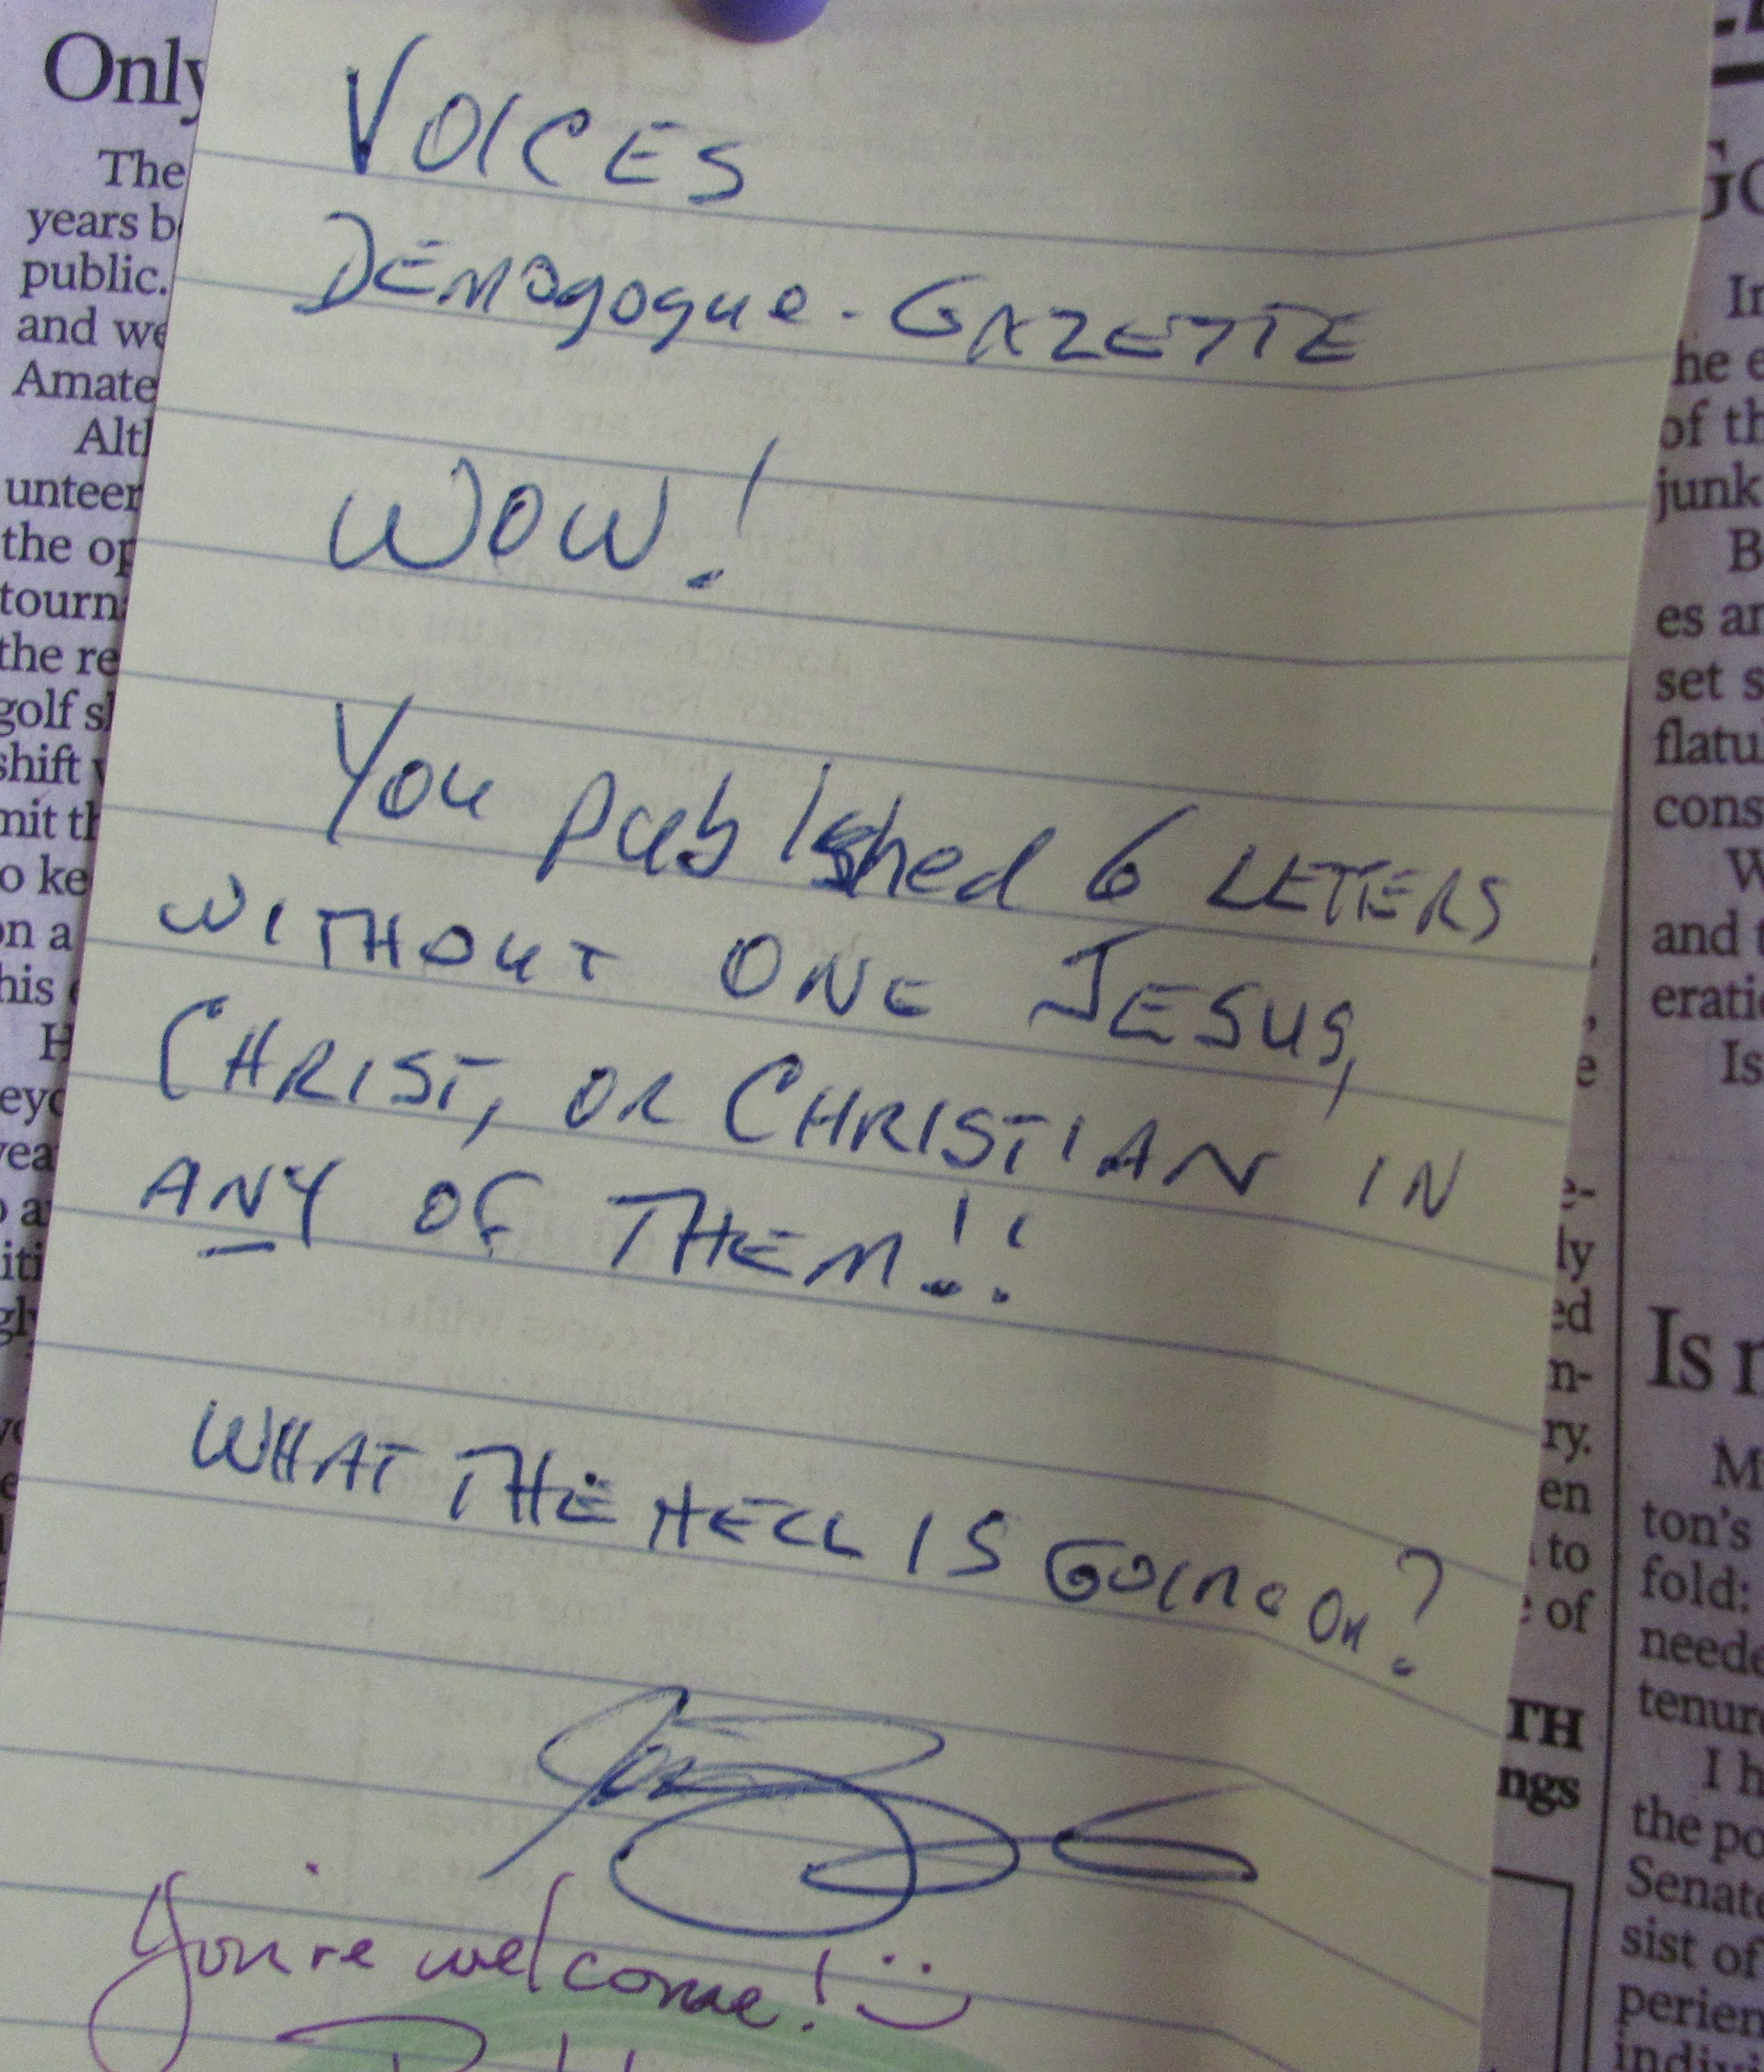 VOICES
DEMagogue-GAZETTE
WOW!
You published 6 LETTERS
WITHOUT ONE JESUS,
CHRIST, OR CHRISTIAN IN
ANY OF THEM!!
WHAT THE HELL IS GOING ON?
you're welcome! :)
Only
The
years b
public.
and we
Amate
Alth
unteer
the op
tourn
the re
golf s
shift
mit th
o ke
on a
his
H
eyo
yea
a
iti
gly
e
ly
ed
n-
ry.
en
to
of
TH
ngs
Go
In
he e
of th
junk
B
es an
set s
flatu
cons
W
and t
eratio
Is
Is n
My
ton's
fold:
neede
tenur
I h
the po
Senat
sist of
perien
indiv